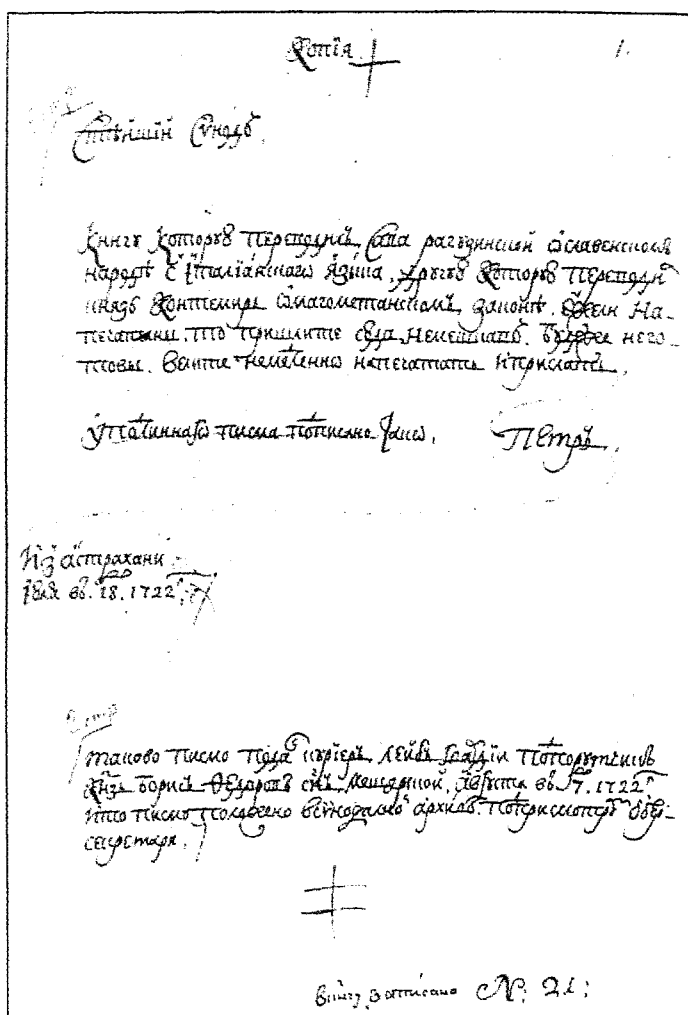 Копїя 1.
Сунодъ.
Книгу которꙋю переводилъ Сава рагузинской ѡ славенскомъ
народѣ с їталїанскагѡ языка, другую которꙋю переводил
князь контемиръ ѡ магометанскомъ законѣ. ежели на-
печатаны. то пришлите сюда немешкавъ. буде же него-
товы. велите немедленно напечатать и прислать.
У подлиннагѡ писма подписано тако, Петръ.
Из астрахани
їюля въ. 18. 1722
таково писмо подал курїеръ лейбъ гвардїи подпорутчикъ
князь борисъ Ѳедоровъ снъ мещерской, августа въ 7. 1722
и то писмо положено в сунодалной архивъ. обер-
секретаря.
в книгу записано №: 21: